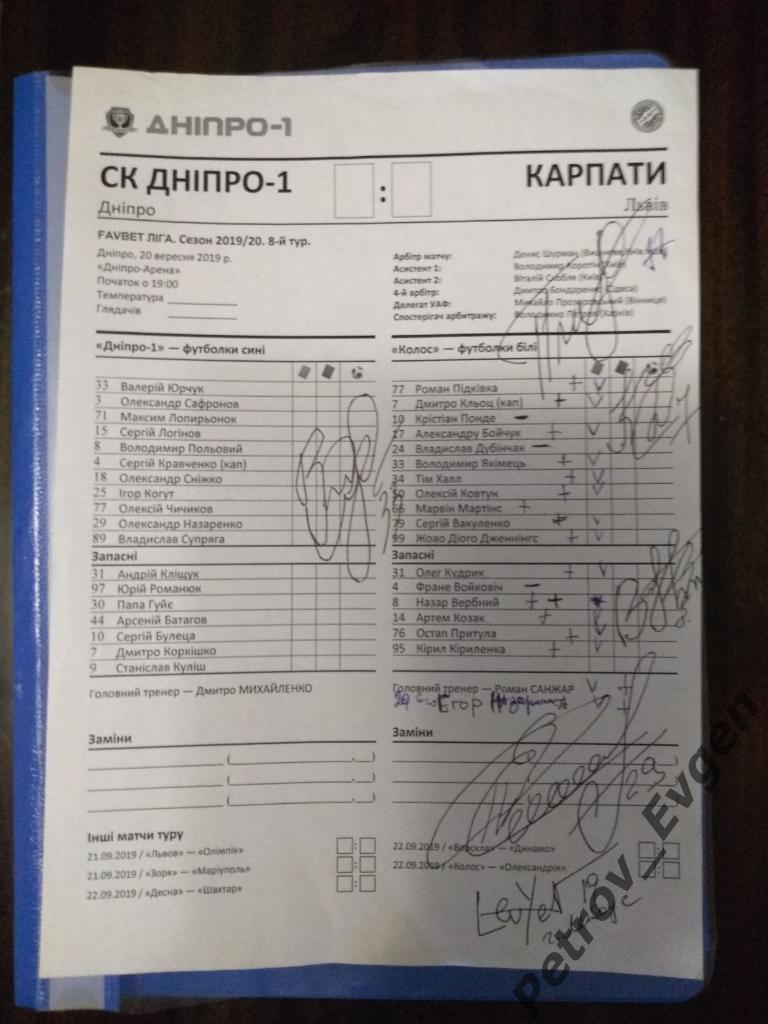 ДНІПРО-1
СК ДНІПРО-1 : КАРПАТИ
Дніпро Львів
FAVBET ЛІГА. Сезон 2019/20. 8-й тур.
Дніпро, 20 вересня 2019 р.
«Дніпро-Арена»
Початок о 19:00
Температура
Глядачів
Арбітр матчу: Денис Шурман
Асистент 1: Володимир
Асистент 2: Віталій (Київ)
4-й арбітр: Дмитро Бондаренко (Одеса)
Делегат УАФ: Михайло (Вінниця)
Спостерігач арбітражу: Володимир Петров (Харків)
«Дніпро-1» — футболки сині
33 Валерій Юрчук
3 Олександр Сафронов
71 Максим Лопирьонок
15 Сергій Логінов
8 Володимир Польовий
4 Сергій Кравченко (кап)
18 Олександр Сніжко
25 Ігор Когут
77 Олексій Чичиков
29 Олександр Назаренко
89 Владислав Супряга
Запасні
31 Андрій Кліщук
97 Юрій Романюк
30 Папа Гуйє
44 Арсеній Батагов
10 Сергій Булеца
7 Дмитро Коркішко
9 Станіслав Куліш
Головний тренер — Дмитро МИХАЙЛЕНКО
Заміни
«Колос» — футболки білі
77 Роман Підківка
7 Дмитро Кльоц (кап)
10 Крістіан Понде
17 Александру Бойчук
24 Владислав Дубінчак
33 Володимир Якімець
34 Тім Халл
50 Олексій Ковтун
66 Марвін Мартінс
79 Сергій Вакуленко
99 Жоао Діого Дженнінгс
Запасні
31 Олег Кудрик
4 Фране Войковіч
8 Назар Вербний
14 Артем Козак
76 Остап Притула
95 Кірил Кіриленка
Головний тренер — Роман САНЖАР
Егор
Заміни
Інші матчи туру
21.09.2019 / «Львов» — «Олімпік» :
21.09.2019 / «Зоря» — «Маріуполь» :
22.09.2019 / «Десна» — «Шахтар» :
22.09.2019 / «Ворскла» — «Динамо» :
22.09.2019 / «Колос» — «Олександрія» :
Petrov_Evgen